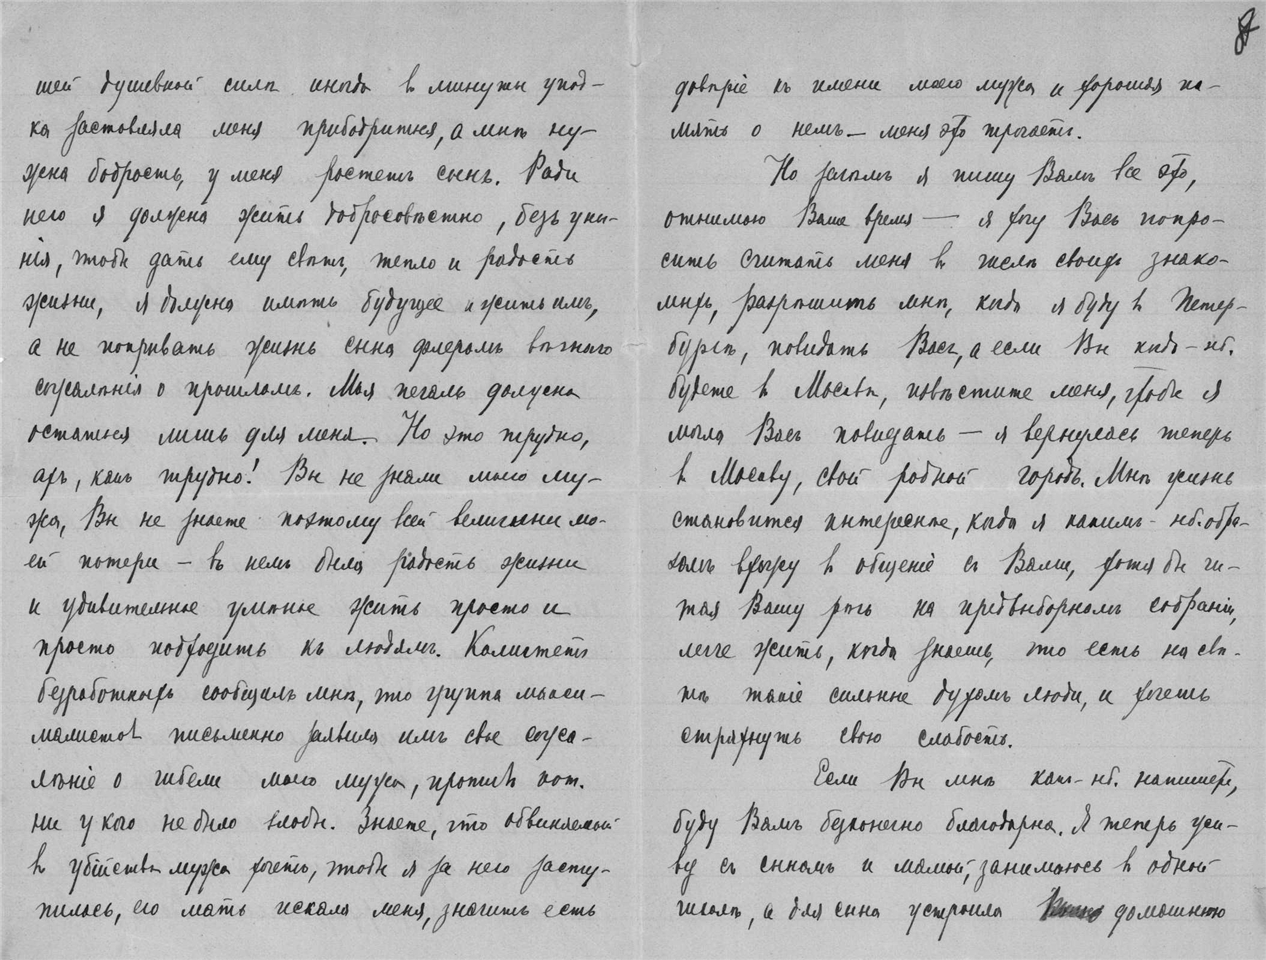 шей душевной силы иногда в минуты упад-
ка заставляла меня прибодриться, а мнѣ ну-
жна бодрость, у меня ростетъ сынъ. Ради
него я должна жить добросовѣстно, безъ уны-
нія, чтобы дать ему свѣтъ, тепло и радость
жизни, я должна имѣть будущее и жить имъ,
а не покрывать жизнь сына флеромъ вѣчнаго
сожалѣнія о прошломъ. Моя печаль должна
остаться лишь для меня. Но это трудно,
ахъ, какъ трудно! Вы не знали моего му-
жа, Вы не знаете поэтому всей величины мо-
ей потери – въ немъ была радость жизни
и удивительное умѣнье жить просто и
просто подходить къ людямъ. Комитетъ
безработныхъ сообщилъ мнѣ, что группа макси-
малистов письменно заявила имъ свое сожа-
лѣніе о гибели моего мужа, противъ кот.
ни у кого не было злобы. Знаете, что обвиняемый
в убійствѣ мужа хочетъ, чтобы я за него засту-
пилась, его мать искала меня, значитъ есть
8
довѣріе къ имени моего мужа и хорошая па-
мять о немъ – меня это трогаетъ.
Но зачѣмъ я пишу Вамъ все это,
отнимаю Ваше время — я хочу Васъ попро-
сить считать меня в числѣ своихъ знако-
мыхъ, разрѣшить мнѣ, когда я буду в Петер-
бургѣ, повидать Васъ, а если Вы когда-нб.
будете в Москвѣ, извѣстите меня, чтобы я
могла Васъ повидать — я вернулась теперь
в Москву, свой родной городъ. Мнѣ жизнь
становится интереснѣе, когда я какимъ-нб. обра-
зомъ вхожу в общеніе съ Вами, хотя бы чи-
тая Вашу рѣчь на предвыборномъ собраніи,
легче жить, когда знаешь, что есть на свѣ-
тѣ такіе сильные духомъ люди, и хочетъ
стряхнуть свою слабость.
Если Вы мнѣ какъ-нб. напишете,
буду Вамъ безконечно благодарна. Я теперь жи-
ву съ сыномъ и мамой, занимаюсь в одной
школѣ, а для сына устроила домашнюю